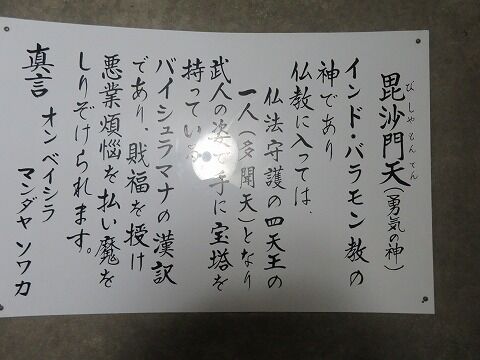 毘沙門天(勇気の神)
びしゃもんてん
インド・バラモン教の
神であり
仏教に入っては、
仏法守護の四天王の
一人(多聞天)となり
武人の姿で手に宝塔を
持っている
バイシュラマナの漢訳
であり、財福を授け
悪業煩悩を払い魔を
しりぞけられます。
真言 オン ベイシラ
マンダヤ ソワカ